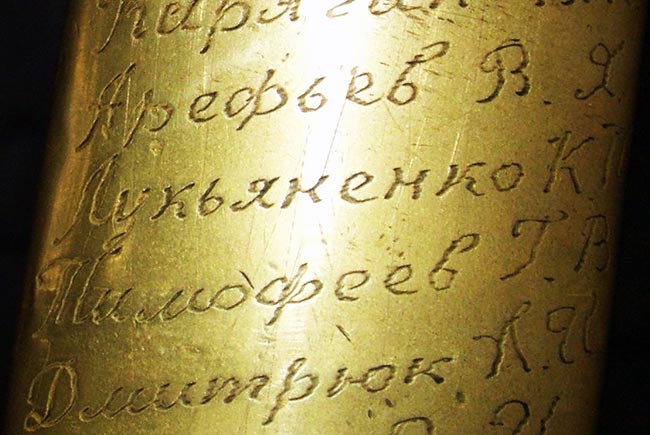 Карягин
Арефьев В. Я.
Лукьяненко К. П
Тимофеев Г. В
Дмитрюк А. П